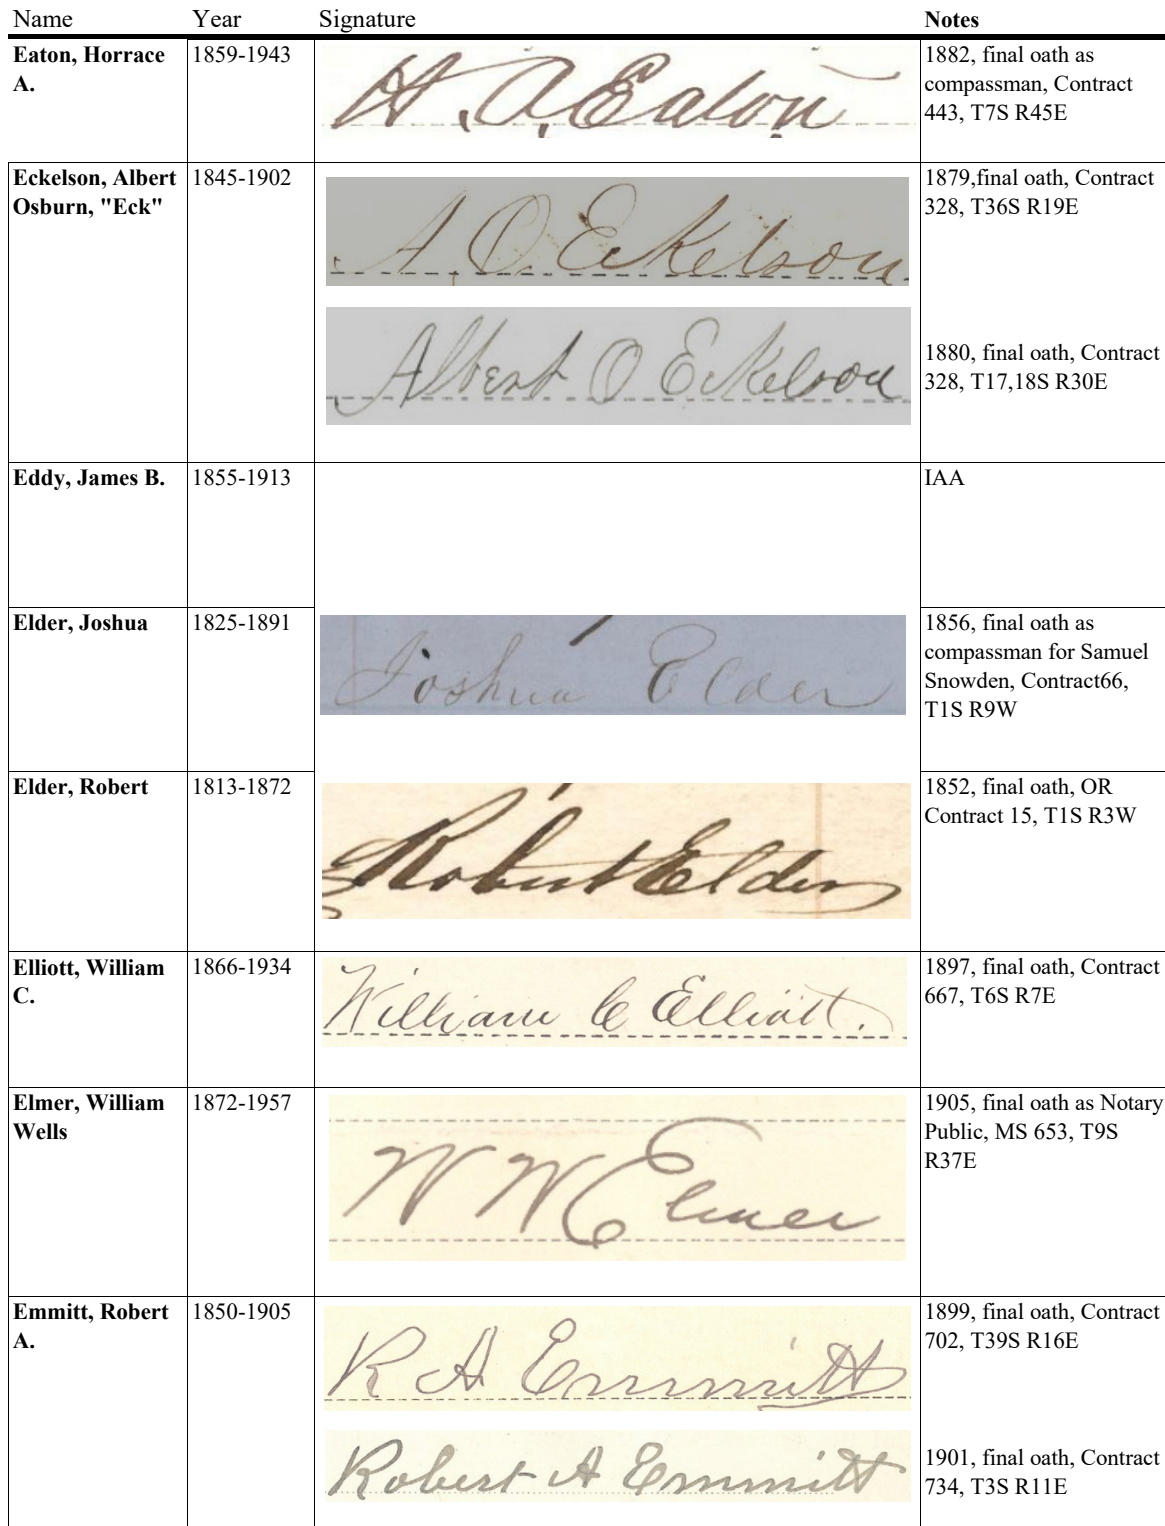 Name Year Signature Notes
Eaton, Horrace 1859-1943 H. A. Eaton 1882, final oath as
A. compassman, Contract
443, T7S R45E
Eckelson, Albert 1845-1902 A. O. Eckelson 1879,final oath, Contract
Osburn, "Eck" 328, T36S R19E
Albert O Eckelson 1880, final oath, Contract
328, T17,18S R30E
Eddy, James B. 1855-1913 IAA
Elder, Joshua 1825-1891 Joshua Elder 1856, final oath as
compassman for Samuel
Snowden, Contract66,
T1S R9W
Elder, Robert 1813-1872 Robert Elder 1852, final oath, OR
Contract 15, T1S R3W
Elliott, William 1866-1934 William C Elliott. 1897, final oath, Contract
C. 667, T6S R7E
Elmer, William 1872-1957 W W Elmer 1905, final oath as Notary
Wells Public, MS 653, T9S
R37E
Emmitt, Robert 1850-1905 R A Emmitt 1899, final oath, Contract
A. 702, T39S R16E
Robert A Emmitt 1901, final oath, Contract
734, T3S R11E